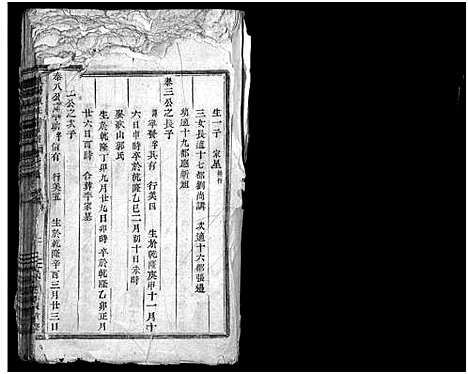 生一子 家星
三女長適十七都劉尚講 次適十六都張過
幼適十九都應新旭
泰三公之長子
諱寧發字其有 行美四 生於乾隆庚申十一月十
六日申時卒於乾隆乙巳二月初十日未時
娶歌山郭氏
生於乾隆丁卯九月廿九日卯時 卒於乾隆乙卯正月
廿六日酉時 合葬牛家墓
二公之季子
泰八 字信有 行美五 生於乾隆辛酉三月廿三日